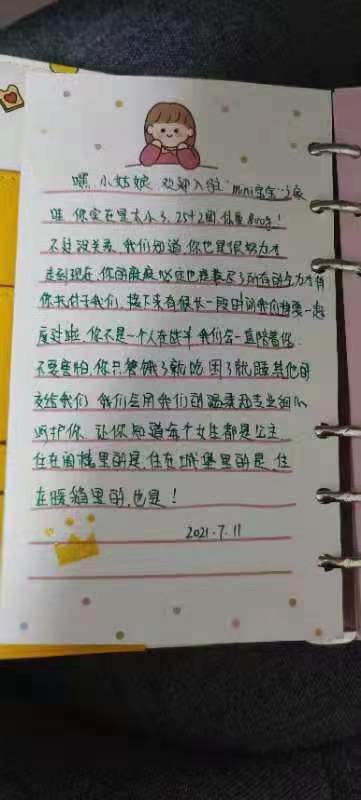 嘿,小姑娘,欢迎入住"mini宝宝"之家
哇,你实在是太小了,25+2周,体重800g!
不过没关系,我们知道,你也是很努力才
走到现在,你的爸爸妈妈也是拼尽了所有的全力才将
你托付于我们,接下来有很长一段时间我们将要一起
度过啦,你不是一个人在战斗,我们会一直陪着你.
不要害怕,你只管饿了就吃,困了就睡,其他的
交给我们,我们会用我们的温柔和专业细心
呵护你,让你知道每个女生都是公主
住在阁楼里的是,住在城堡里的是,住
在暖箱里的,也是!
2021.7.11